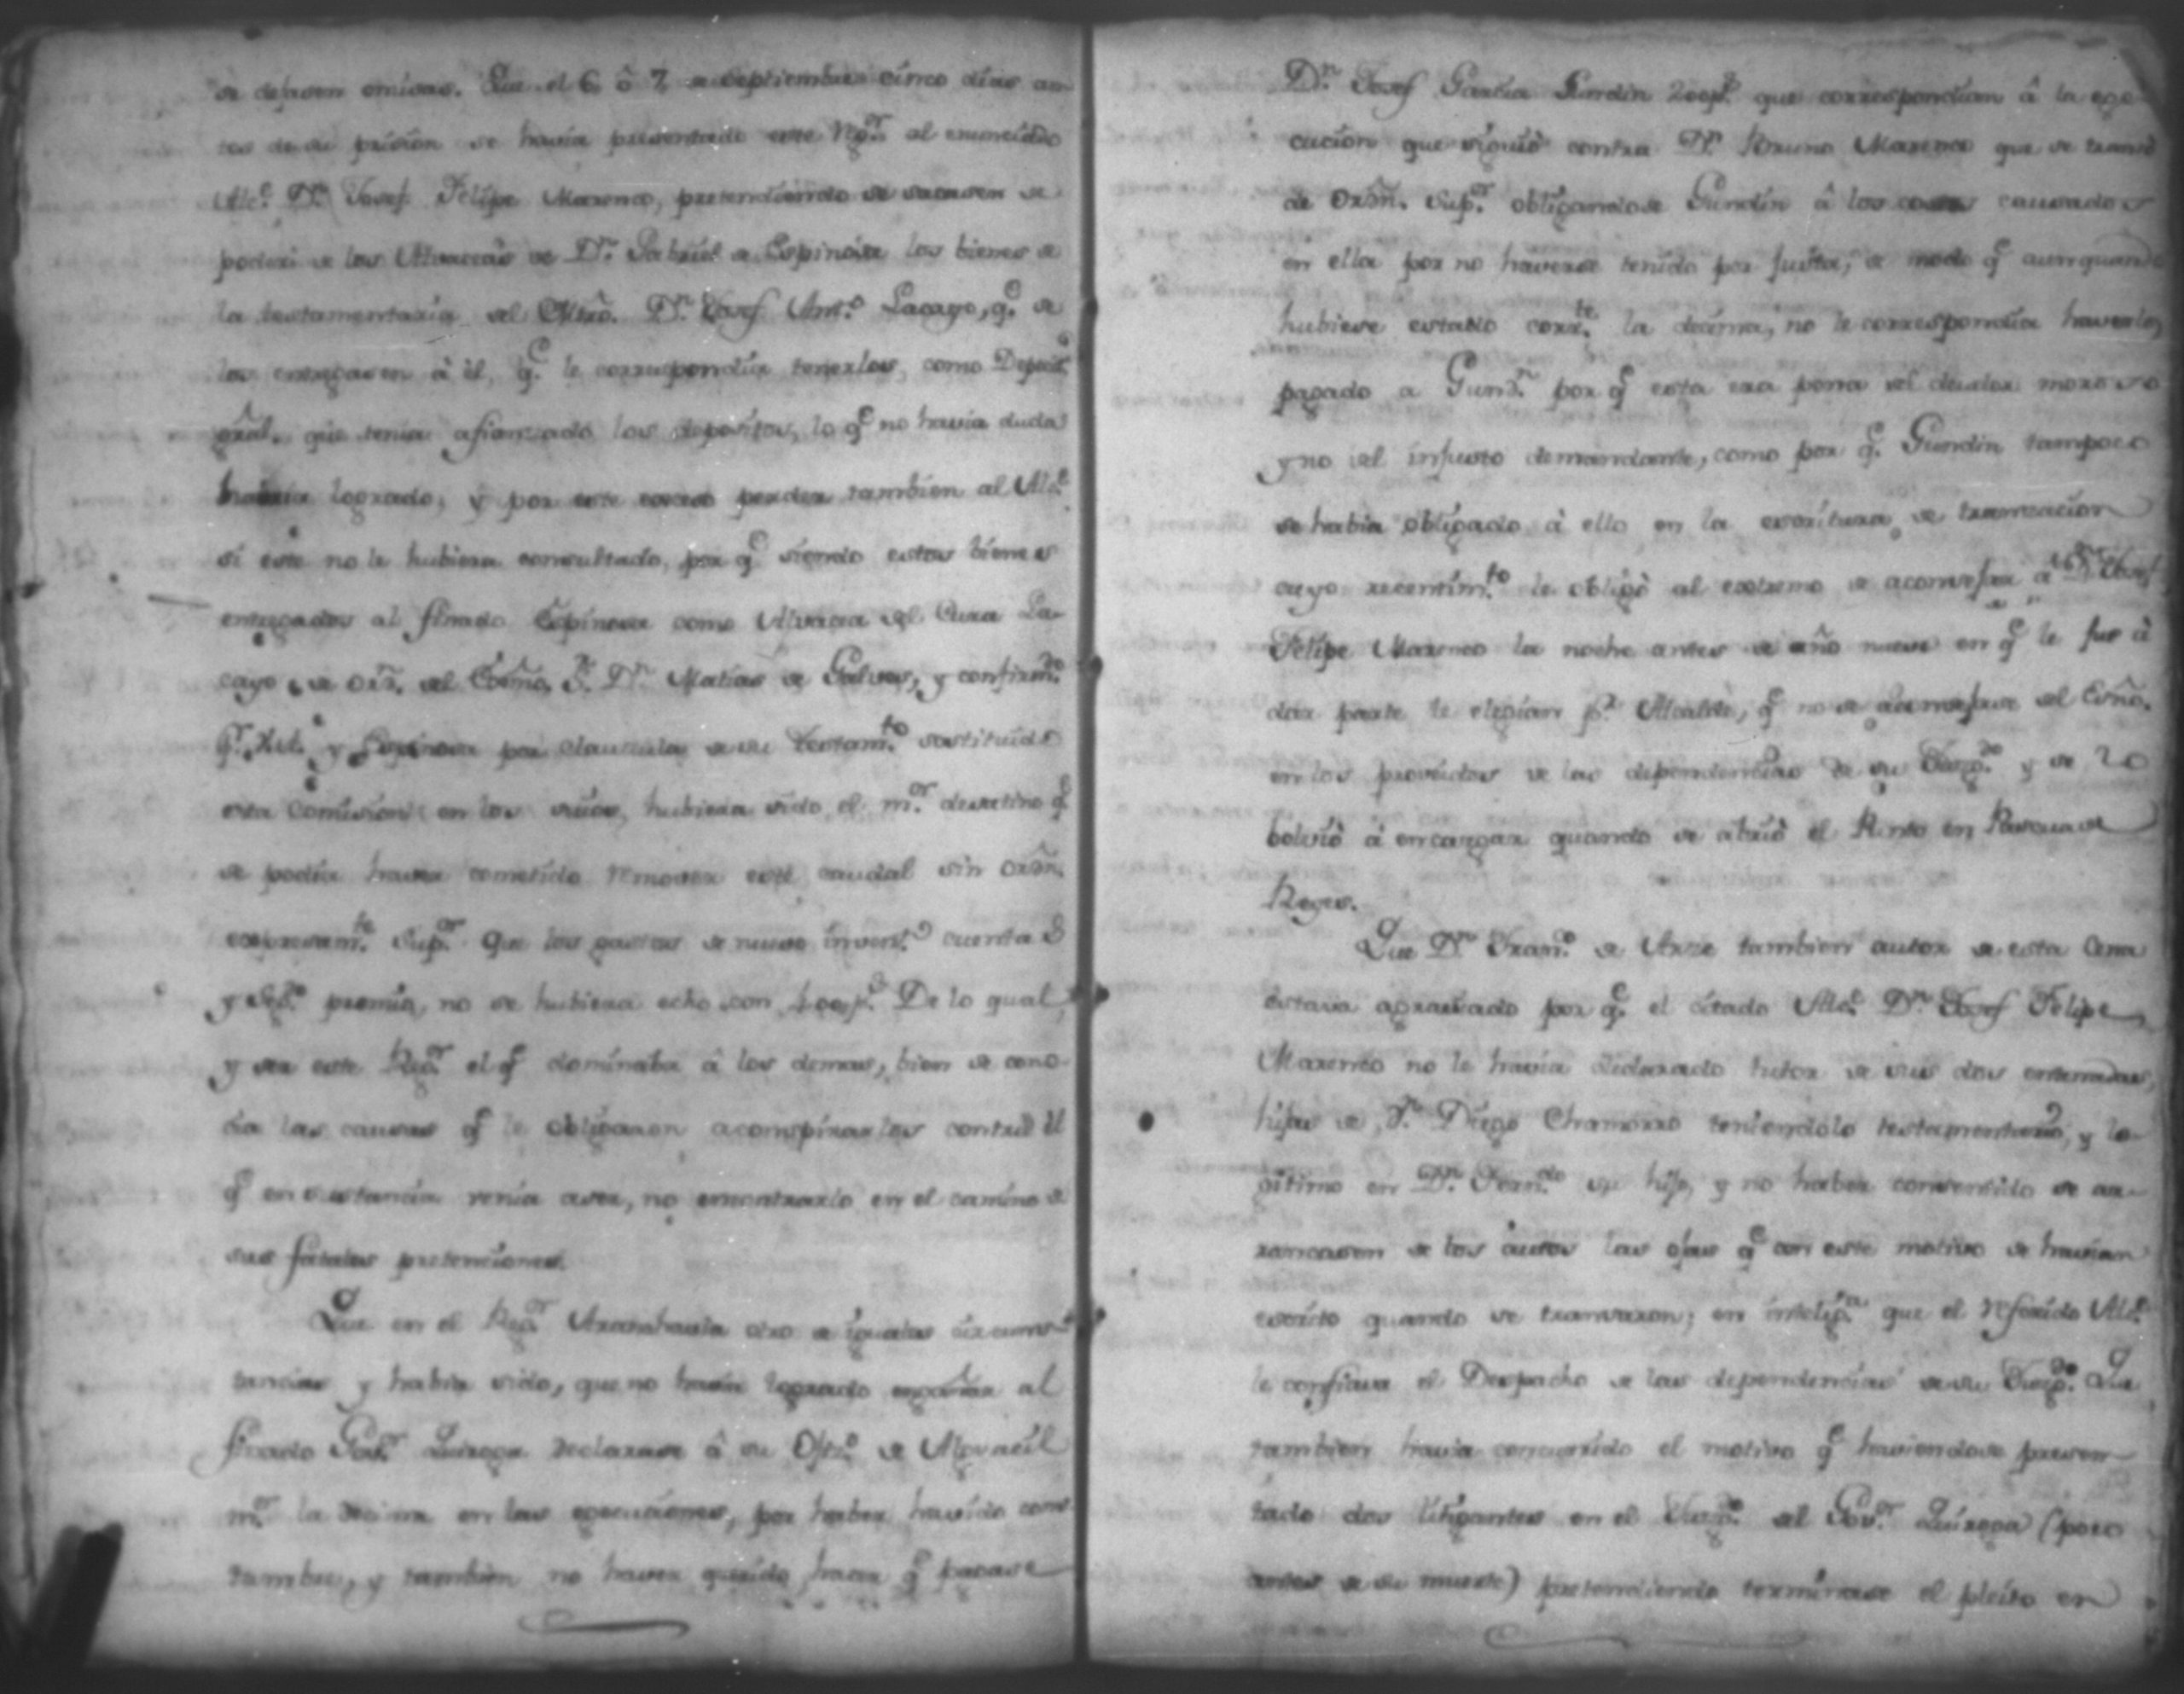 se dejasen omisos. Que el 6 ô 7 de Septiembre cinco dias an-
tes de su prision se havia presentado este Rg.or al enunciado
Alc.e D.n Josef Felipe Marenco, pretendiendo se sacasen de
poder de los Alvaceas de D.n Gabriel de Espinosa los bienes de
la testamentaria del Mtrõ. D.n Josef Ant.o Lacayo, q.e se
los entregasen â él, q.e le correspondia tenerlos, como Deposit.o
gral. que tenia afianzado los depositos, lo q.e no havia duda
logrado, y por este perder tambien al Alc.e
si este no le hubiera consultado, por q.e siendo estos bienes
entregados al finado Espinosa como Alvacea del Cura La-
cayo de orn. del Exmõ. S.r D.n Matias de Galves, y confirm.do
y Espinosa por clausula de su testam.to sostituido
esta Comision en los suios, hubiera sido el m.or desatino q.e
se podia haver cometido remover este caudal sin ordn.
expresam.te Sup.or Que los gastos de nuevo invent.o cuenta
y premia, no se hubiera echo con 400p.s De lo qual,
y ser este Reg.or el q.e dominaba â los demas, bien se cono-
cia las causas q.e le obligaron aconspirarlos contra él
q.e en sustancia venia aser, no encontrarlo en el camino de
sus fatales pretenciones.
Que en el Reg.or Arrechavala otro de iguales circuns-
tancias y habia sido, que no havia logrado engañar al
finado Gov.or Quiroga declarase â su Ofic.o de Alguacil
m.or la decima en las egecuciones, por haber havido cos-
tumbre, y tambien no haver querido hacer q.e pagase
D.n Josef Garcia Gundin 200p.s que correspondian â la ege-
cucion que siguió contra D.n Bruno Marenco que se transó
de Ordn. Sup.or obligandose Gundin â las costas causadas
en ella por no haverse tenido por justa, de modo q.e aunquando
hubiese estado corr.te la decima, no le correspondia haverlo
pagado a Gund.n por q.e esta era pena del deudor moroso
y no del injusto demandante, como por q.e Gundin tampoco
se habia obligado â ello en la escritura de transacion
cuyo recentim.to le obligó al extremo de aconsejar a D.n Josef
Felipe Marenco la noche antes de año nuevo en q.e le fue â
dar parte le elegian p.r Alcalde, q.e no se aconsejase del Exmõ.
en los proveidos de las dependencias de su Juzg.do y se lo
bolvió â encargar quando se abrió el Punto en Pascua de
Reyes.
Que D.n Fran.co de Arze tambien autor de esta Cena
estava agraviado por q.e el citado Alc.e D.n Josef Felipe
Marenco no le havia declarado tutor de sus dos entenadas,
hijas de D.n Diego Chamorro teniendolo testamentario, y le-
gitimo en D.n Fern.do su hijo, y no haber consentido se ar-
rancasen de los autos las ojas q.e con este motivo se havian
escrito quando se transaron; en intelig.a que el referido Alc.e
le confiava el Despacho de las dependencias de su Juzg.do Que
tambien havia concurrido el motivo q.e haviendose presen-
tado dos litigantes en el Juzg.do del Gov.or Quiroga (poco
antes de su muerte) pretendiendo terminase el pleito en